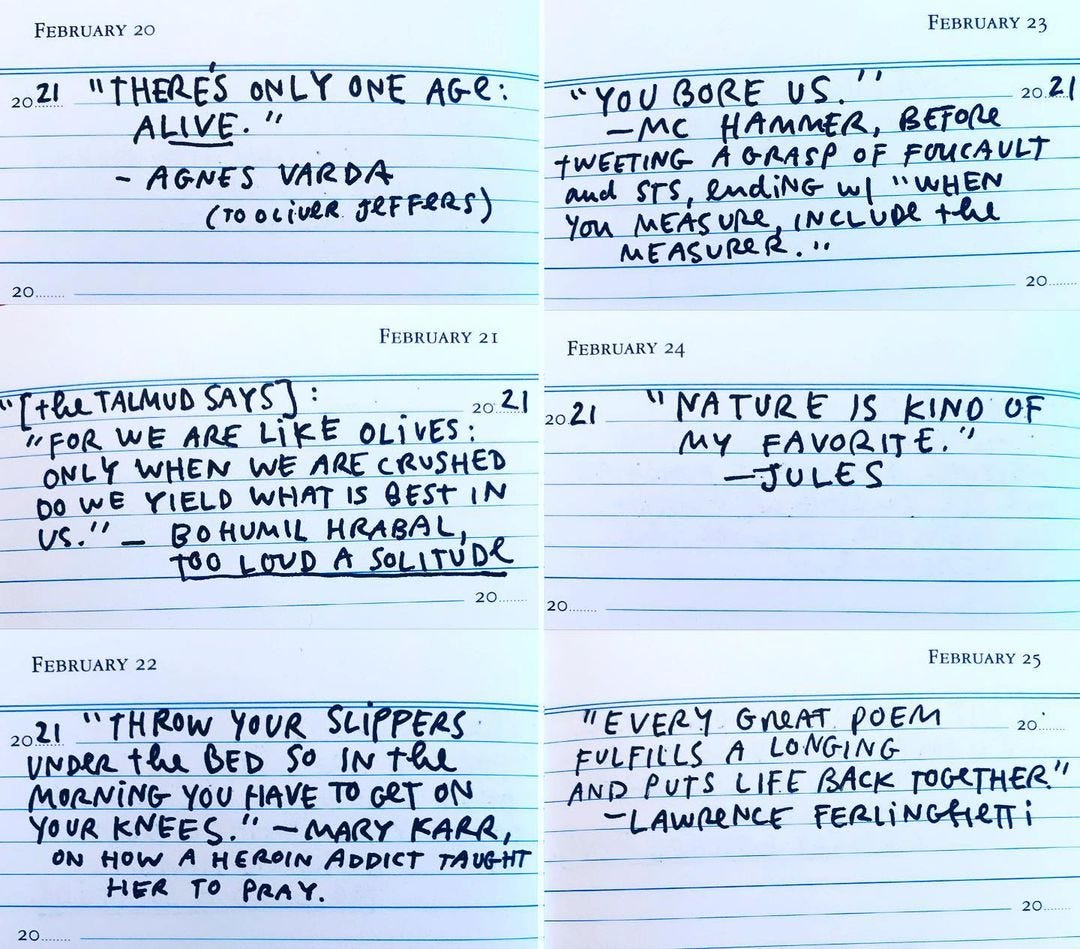 FEBRUARY 20
2021 "THERE'S ONLY ONE AGE:
ALIVE."
- AGNES VARDA
(TO OLIVER JEFFERS)
20........
FEBRUARY 21
"[the TALMUD SAYS]: 2021
"FOR WE ARE LIKE OLIVES:
ONLY WHEN WE ARE CRUSHED
DO WE YIELD WHAT IS BEST IN
US." — BOHUMIL HRABAL,
TOO LOUD A SOLITUDE
20........
FEBRUARY 22
2021 "THROW YOUR SLIPPERS
UNDER the BED SO IN the
MORNING YOU HAVE TO GET ON
YOUR KNEES." — MARY KARR,
ON HOW A HEROIN ADDICT TAUGHT
HER TO PRAY.
20........
FEBRUARY 23
"YOU BORE US." 2021
— MC HAMMER, BEFORE
TWEETING A GRASP OF FOUCAULT
and STS, ENDING W/ "WHEN
YOU MEASURE, INCLUDE the
MEASURER."
20........
FEBRUARY 24
2021 "NATURE IS KIND OF
MY FAVORITE."
— JULES
20........
FEBRUARY 25
"EVERY GREAT POEM 20........
FULFILLS A LONGING
AND PUTS LIFE BACK TOGETHER"
- LAWRENCE FERLINGHETTI
20........